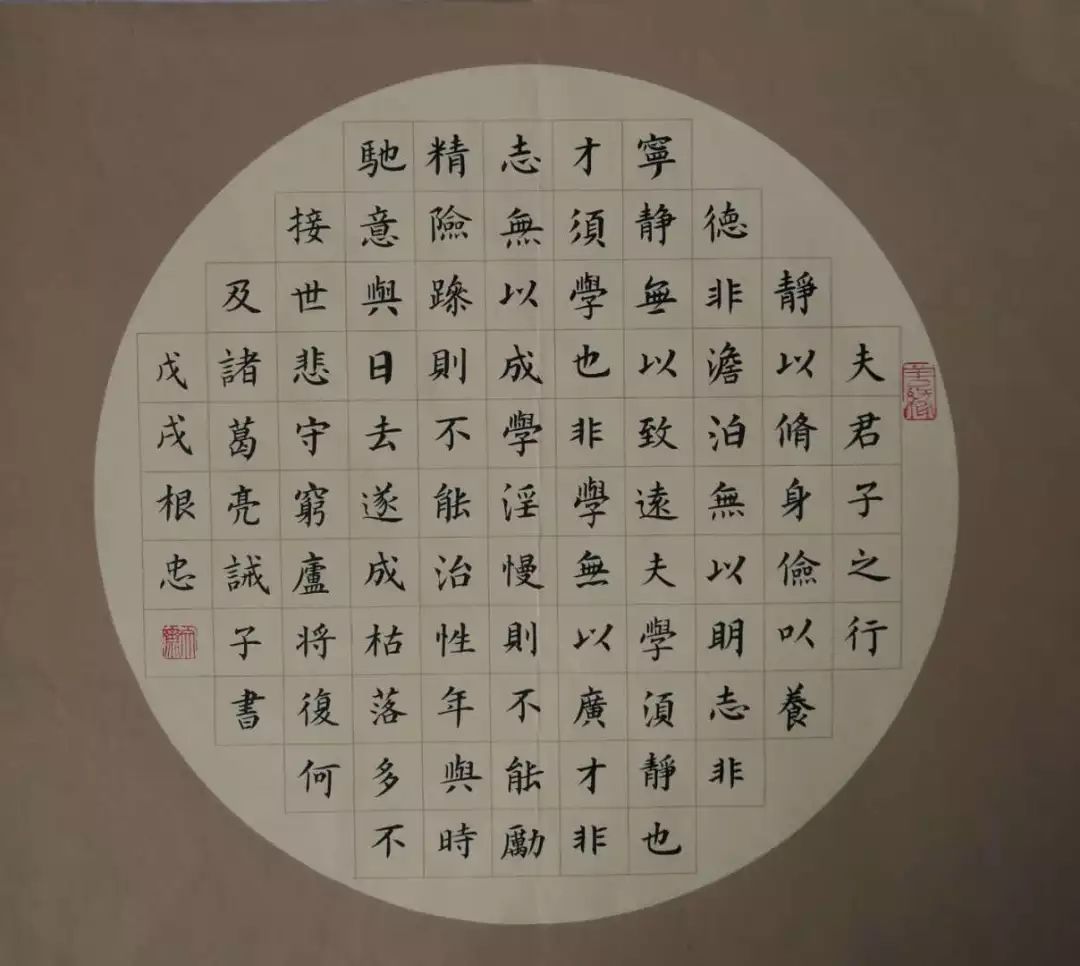 夫君子之行
靜以脩身儉以養
德非澹泊無以明志非
寧静無以致遠夫學須靜也
才須學也非學無以廣才非
志無以成學淫慢則不能勵
精險躁則不能治性年與時
馳意與日去遂成枯落多不
接世悲守窮廬将復何
及諸葛亮誡子書
戊戌根忠